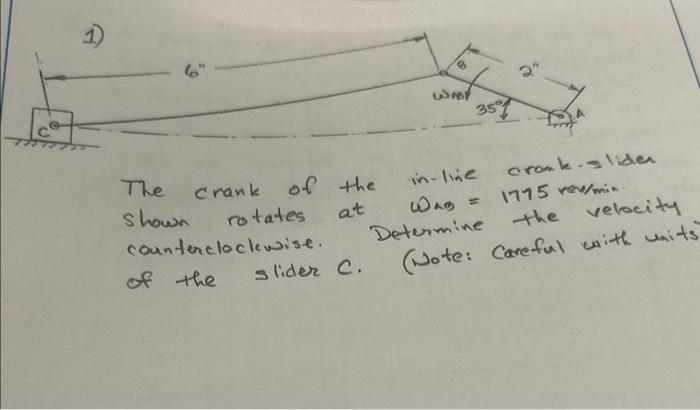 1)
6"
B
2"
35°
A
C
The crank of the in-line crank-slider
shown rotates at ωAB = 1775 rev/min
counterclockwise. Determine the velocity
of the slider C. (Note: Careful with units